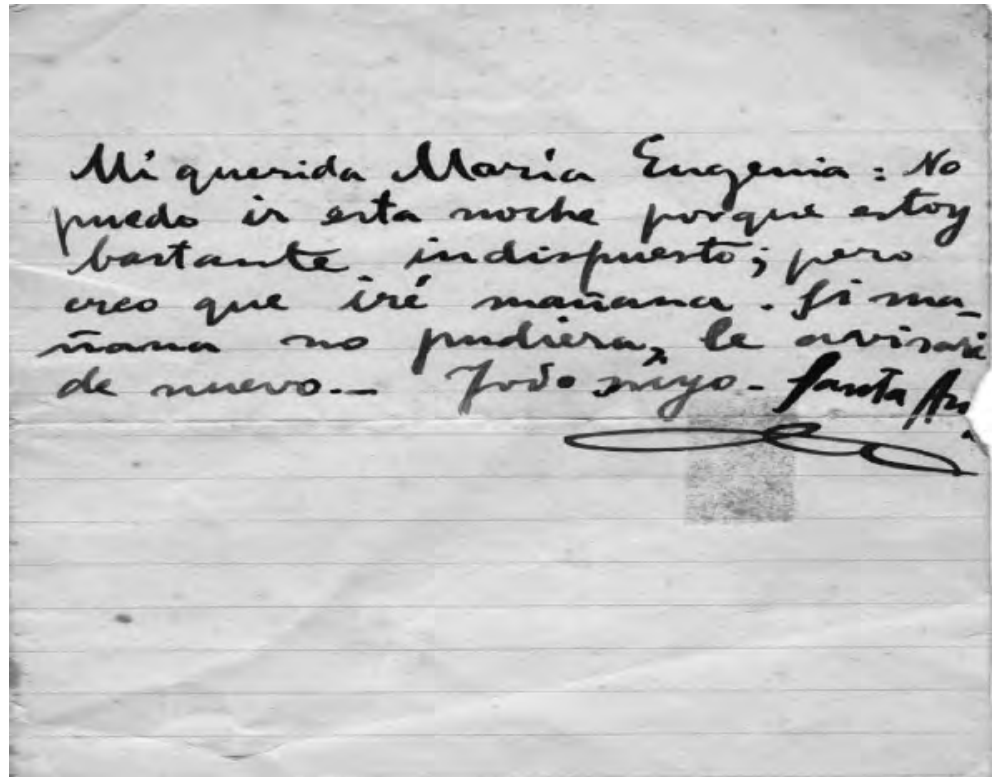 Mi querida María Eugenia: No
puedo ir esta noche porque estoy
bastante indispuesto; pero
creo que iré mañana. Si ma-
ñana no pudiera, le avisaré
de nuevo.— Todo suyo - Santa An